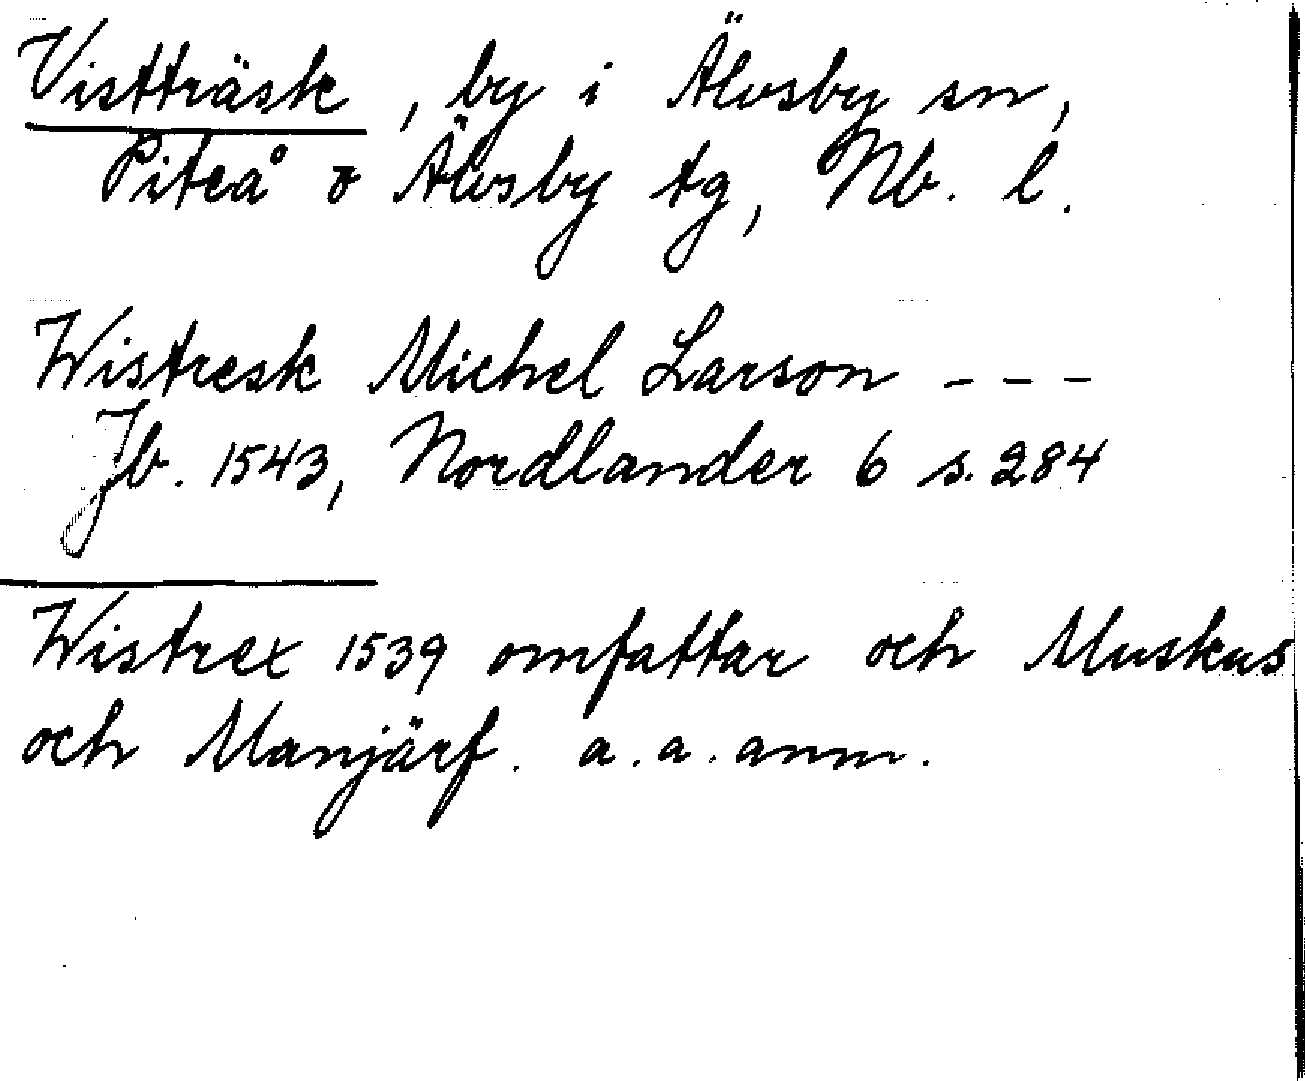 Vistträsk, by i Älvsby sn,
Piteå o Älvsby tg, Nb. l.
Wistresk Michel Larson - - -
Jb. 1543, Nordlander 6 s. 284
Wistrex 1539 omfattar och Muskus
och Manjärf. a. a. anm.